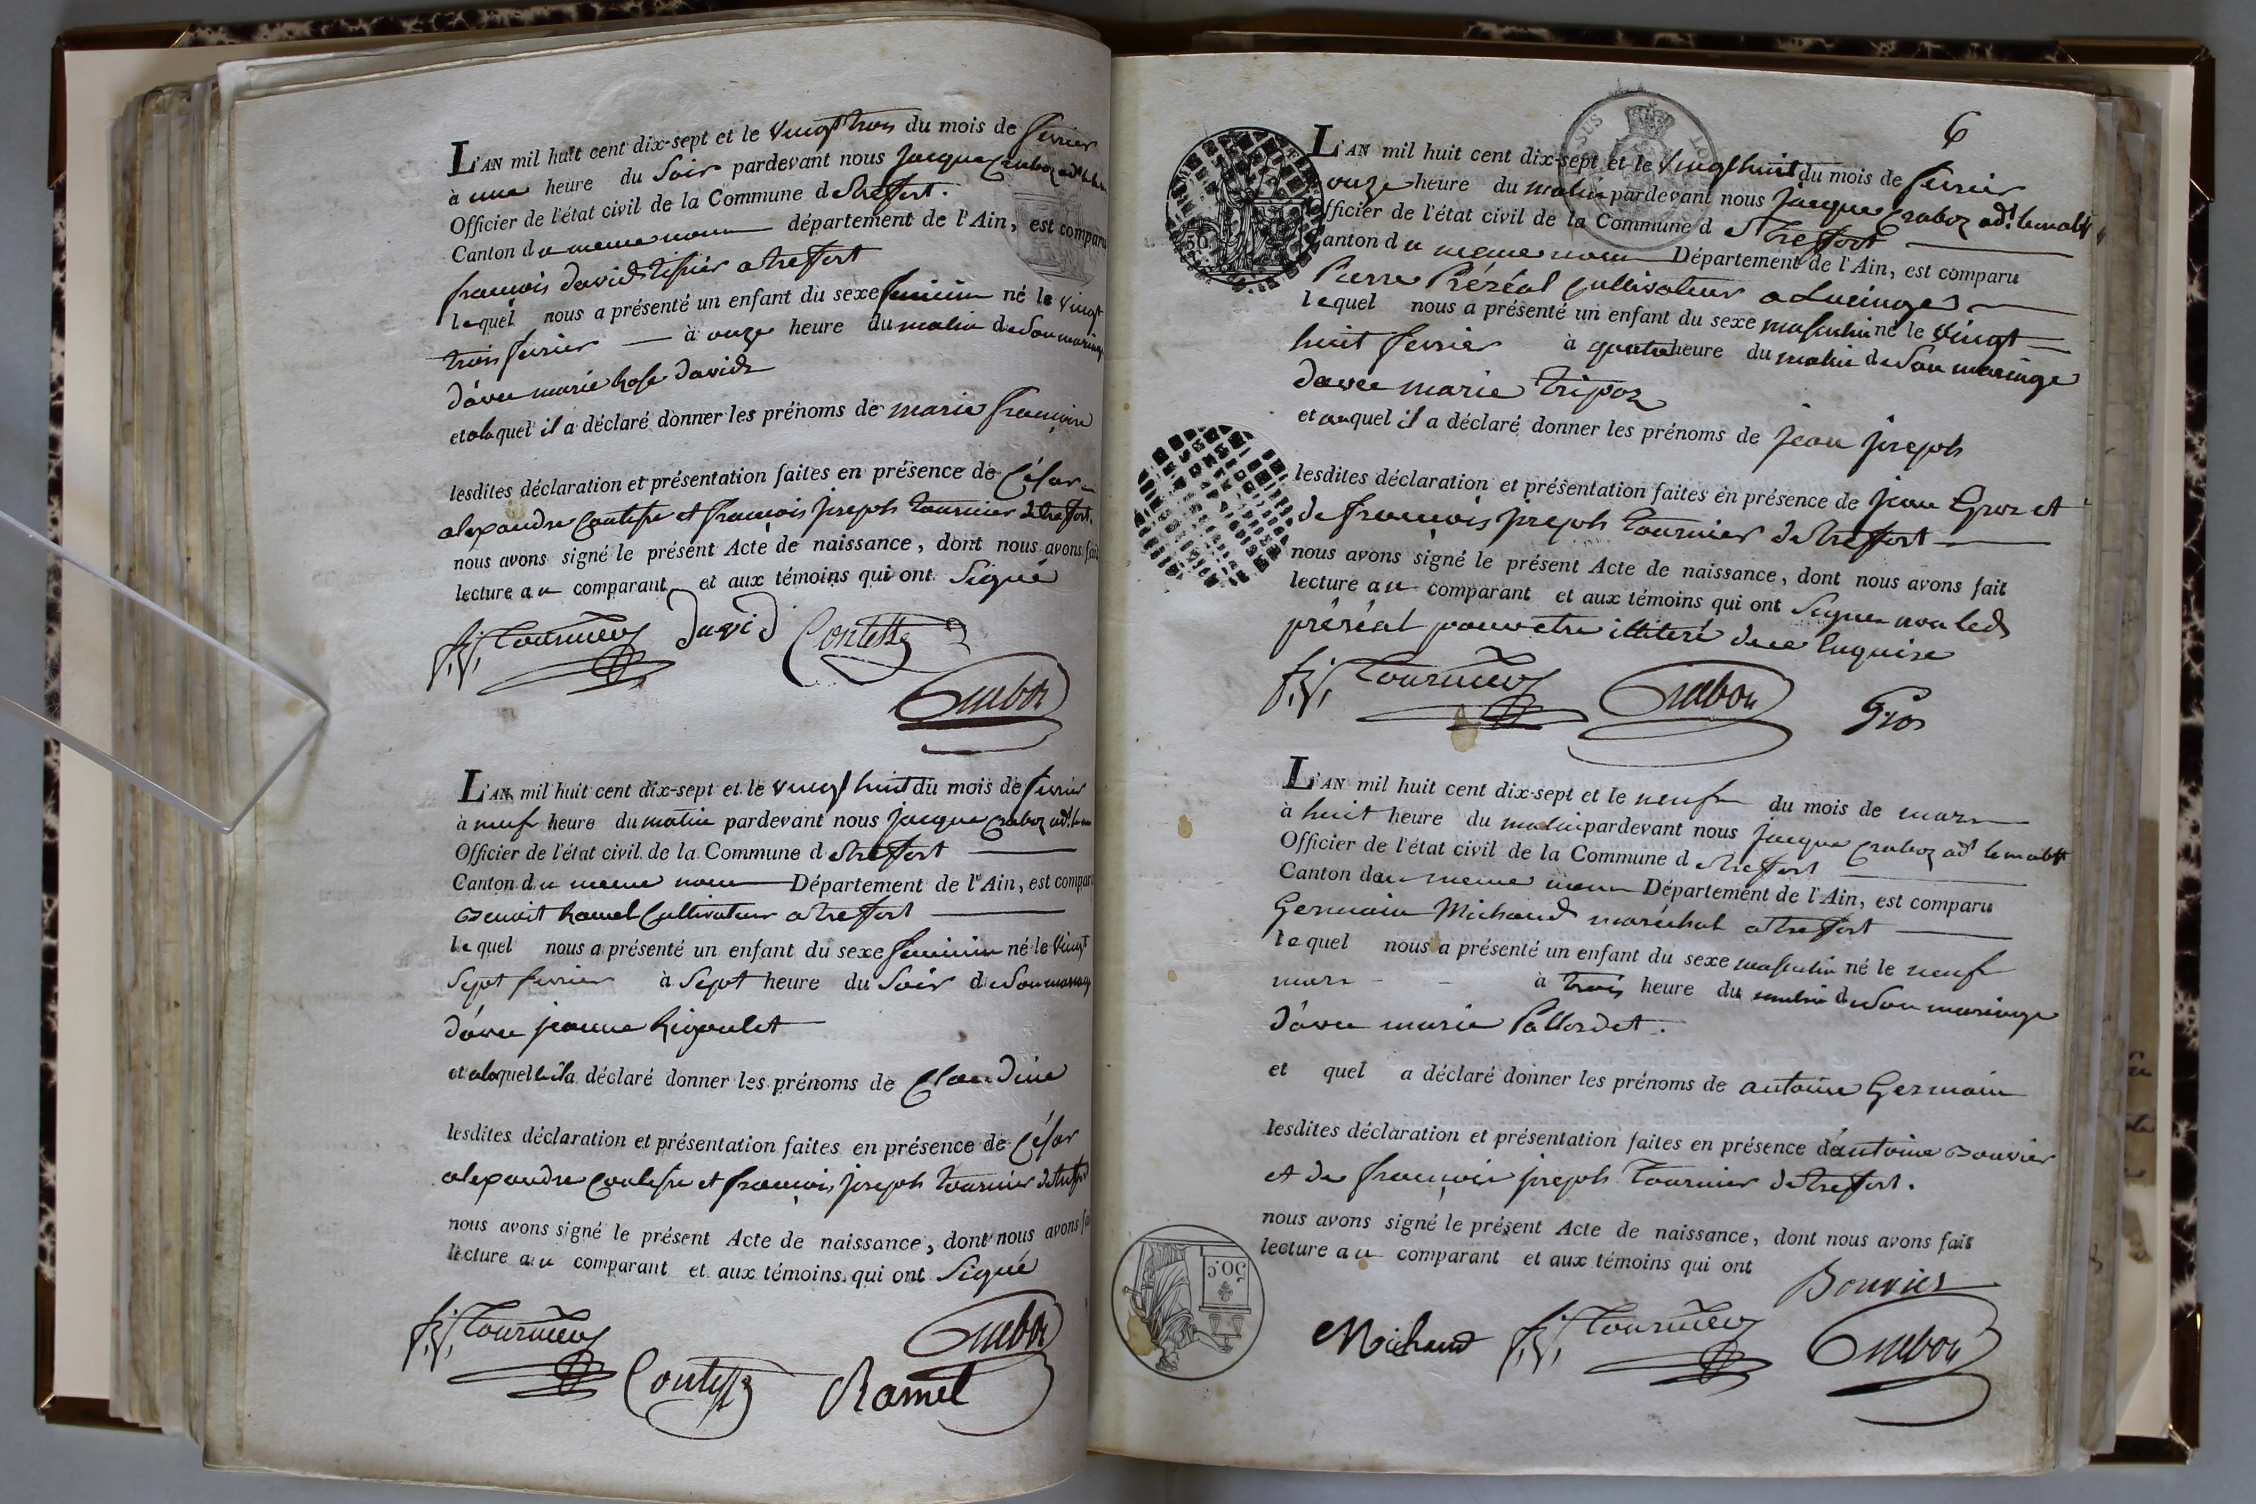 L'AN mil huit cent dix-sept et le vingt trois du mois de fevrier
à une heure du Soir pardevant nous Jacque Craboz adt.
Officier de l'état civil de la Commune d etreffort.
Canton du meme nom département de l'Ain, est comparu
françois david tissier a treffort
lequel nous a présenté un enfant du sexe feminin né le vingt
trois fevrier à onze heure du matin de Son mariage
d'avec marie Rose david
et alaquel il a déclaré donner les prénoms de marie françoise
lesdites déclaration et présentation faites en présence de César
alexandre Contesse et françois joseph tournier de treffort.
nous avons signé le présent Acte de naissance, dont nous avons fait
lecture au comparant et aux témoins qui ont Signé
f. j. Tournier david Contesse
Craboz
L'AN mil huit cent dix-sept et le vingt huit du mois de fevrier
à neuf heure du matin pardevant nous Jacque Craboz adt.
Officier de l'état civil de la Commune d etreffort
Canton du meme nom Département de l'Ain, est comparu
Benoit Ramel Cultivateur a treffort
lequel nous a présenté un enfant du sexe feminin né le vingt
Sept fevrier à Sept heure du Soir de Son mariage
d'avec jeanne Rigoulet
et alaquelle il a déclaré donner les prénoms de Claudine
lesdites déclaration et présentation faites en présence de César
alexandre Contesse et françois joseph tournier de treffort
nous avons signé le présent Acte de naissance, dont nous avons fait
lecture au comparant et aux témoins qui ont Signé
f. j. Tournier Craboz
Contesse Ramel
6
L'AN mil huit cent dix-sept et le vingt huit du mois de fevrier
onze heure du matin pardevant nous Jacque Craboz adt.
Officier de l'état civil de la Commune d etreffort
Canton du meme nom Département de l'Ain, est comparu
Pierre Préréal Cultivateur a Lucinges
lequel nous a présenté un enfant du sexe masculin né le vingt
huit fevrier à quatre heure du matin de Son mariage
davec marie tripoz
et auquel il a déclaré donner les prénoms de jean joseph
lesdites déclaration et présentation faites en présence de jean Gros et
de françois joseph tournier de treffort
nous avons signé le présent Acte de naissance, dont nous avons fait
lecture au comparant et aux témoins qui ont Signer non led
préréal pour etre illiteré de ce Enquise
f. j. Tournier Craboz Gros
L'AN mil huit cent dix-sept et le neuf du mois de mars
à huit heure du matin pardevant nous jacque Craboz adt.
Officier de l'état civil de la Commune d etreffort
Canton du meme nom Département de l'Ain, est comparu
Germain Michaud maréchal a treffort
lequel nous a présenté un enfant du sexe masculin né le neuf
mars à trois heure du matin de Son mariage
d'avec marie Pallordet.
et quel a déclaré donner les prénoms de antoine Germain
lesdites déclaration et présentation faites en présence d'antoine Bouvier
et de françois joseph Tournier de treffort.
nous avons signé le présent Acte de naissance, dont nous avons fait
lecture au comparant et aux témoins qui ont
Bouvier
Michaud f. j. Tournier Craboz
50.C